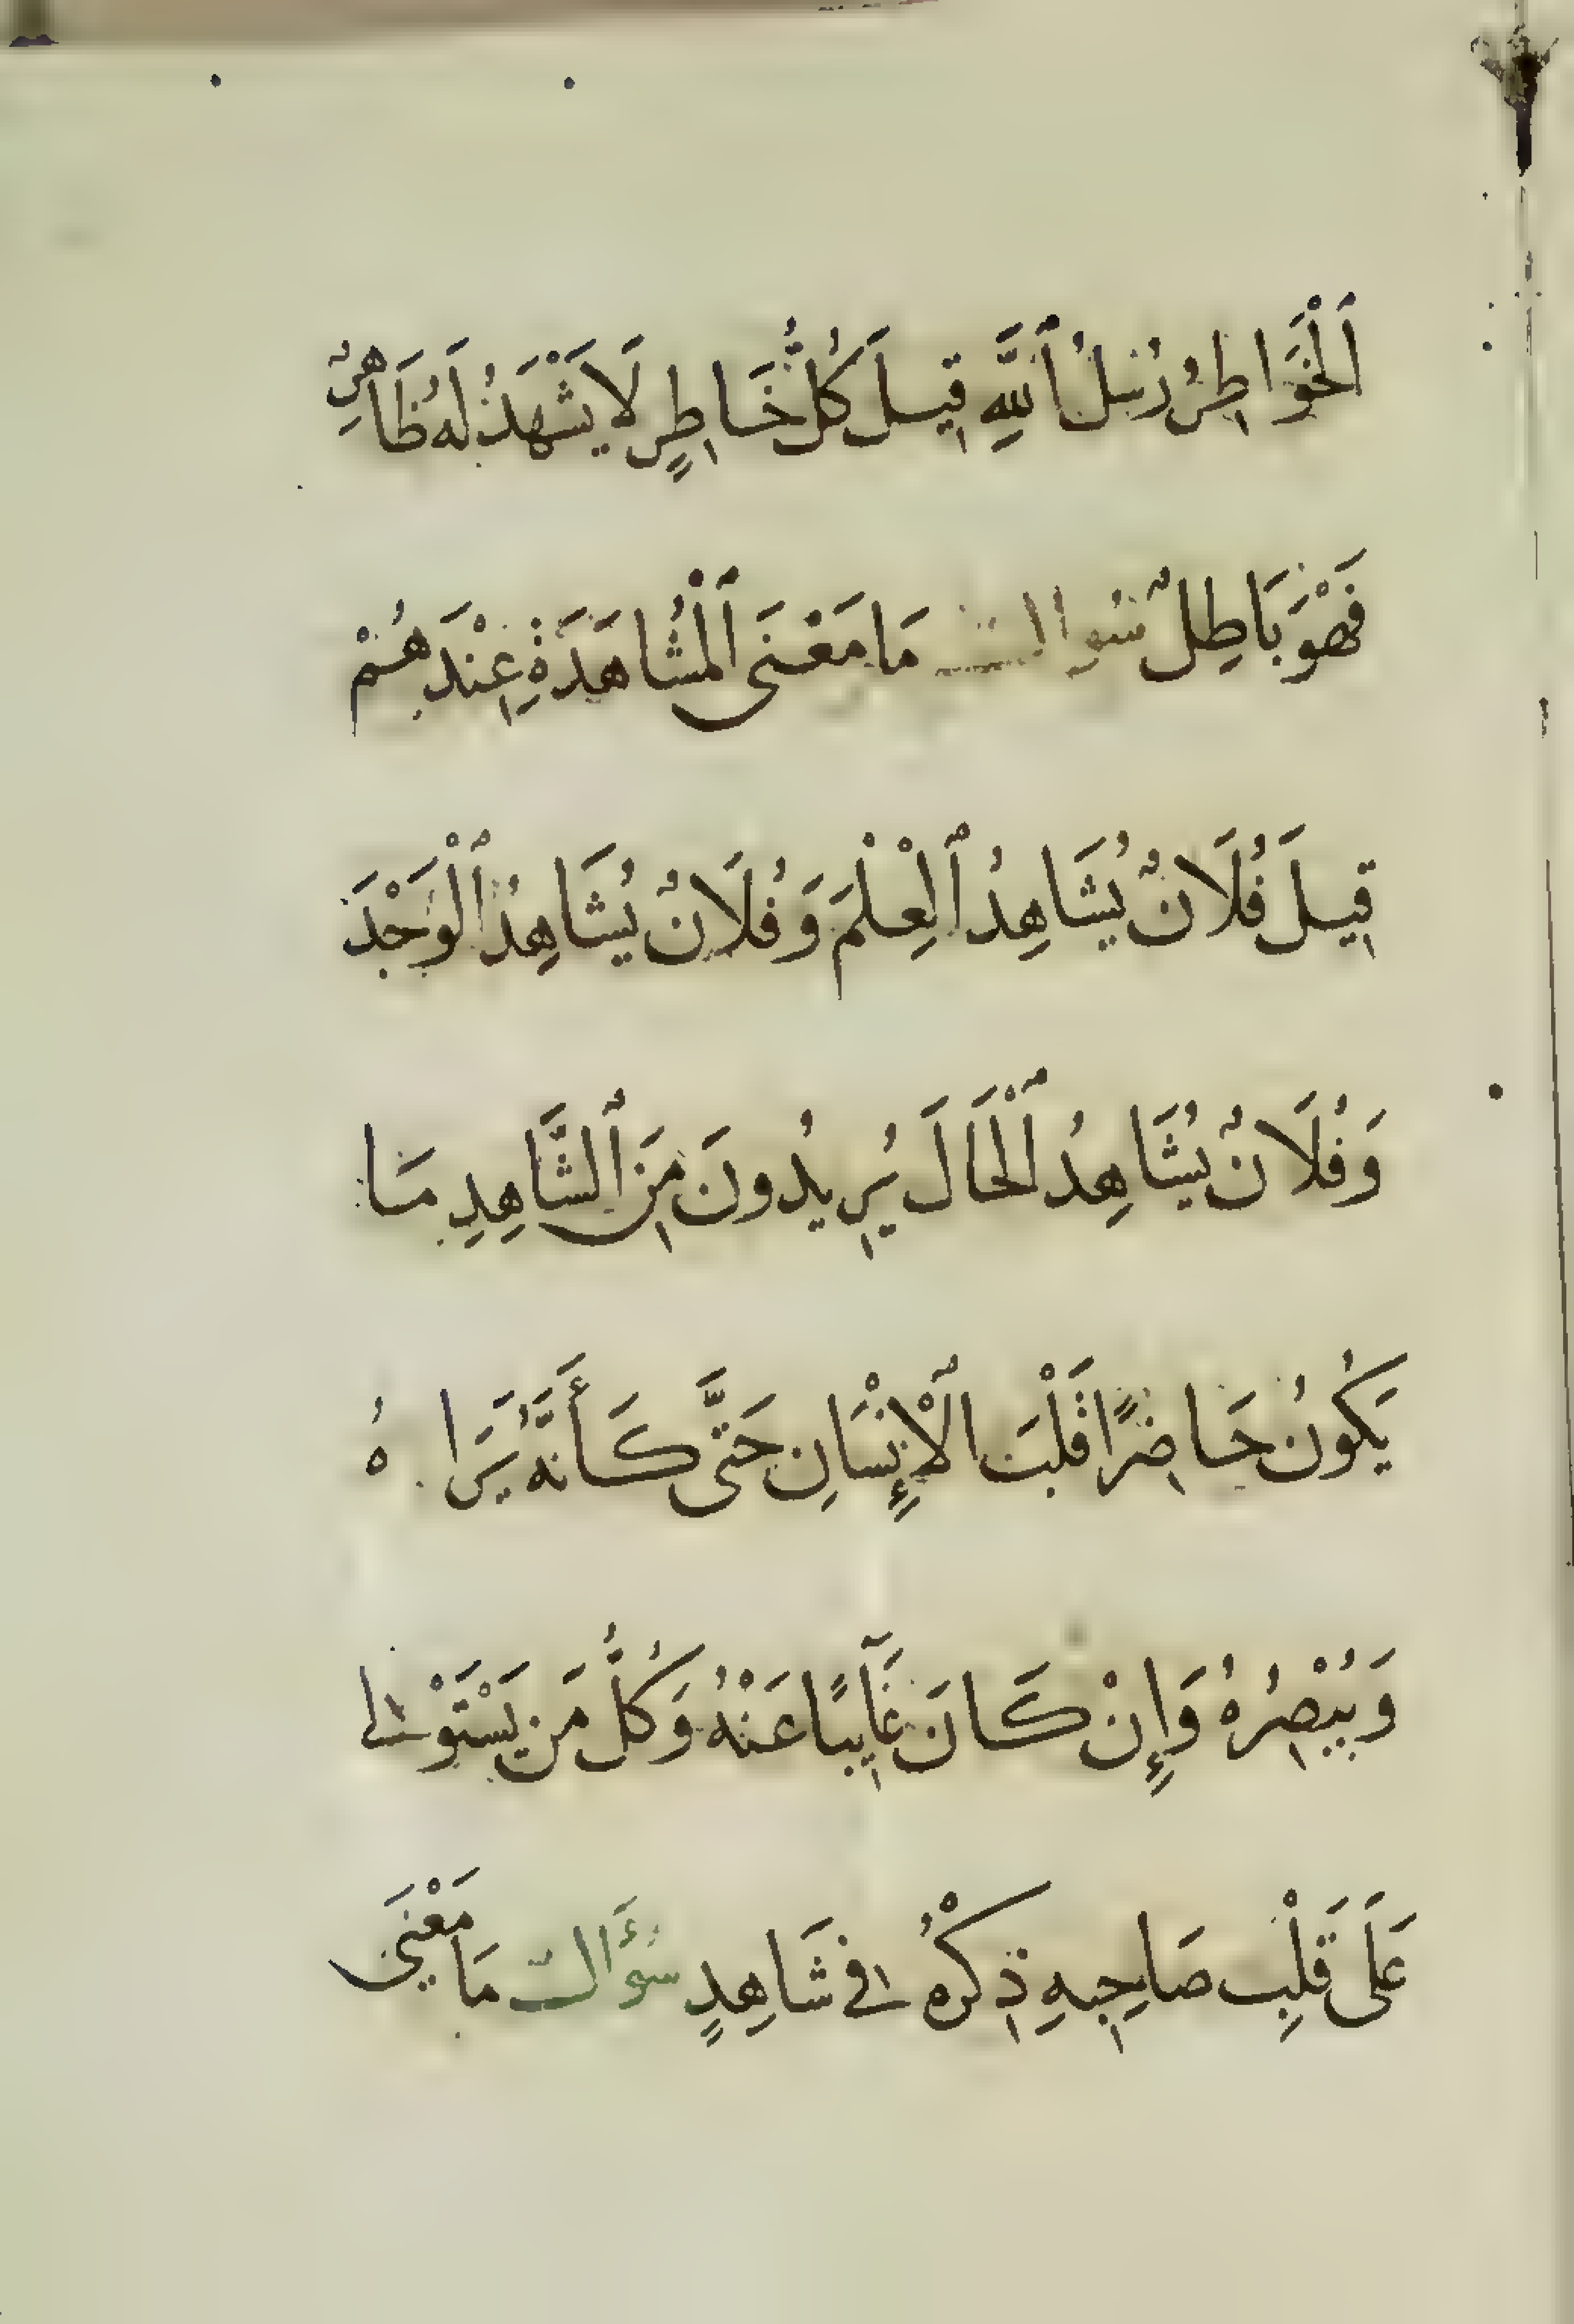 اَلْخَوَاطِرُ رُسُلُ ٱللَّهِ قِيلَ كُلُّ خَاطِرٍ لَا يَشْهَدُ لَهُ ظَاهِرٌ
فَهْوَ بَاطِلٌ سُوال مَا مَعْنَى ٱلْمُشَاهَدَةِ عِنْدَهُمْ
قِيلَ فُلَانٌ يُشَاهِدُ ٱلْعِلْمَ وَفُلَانٌ يُشَاهِدُ ٱلْوَجْدَ
وَفُلَانٌ يُشَاهِدُ ٱلْحَالَ يُرِيدُونَ مِنَ ٱلشَّاهِدِ مَا
يَكُونُ حَاضِرًا قَلْبَ ٱلْإِنْسَانِ حَتَّى كَأَنَّهُ يَرَاهُ
وَيُبْصِرُهُ وَإِنْ كَانَ غَآيِبًا عَنْهُ وَكُلُّ مَن يَسْتَوْلى
عَلَى قَلْبِ صَاحِبِهِ ذِكْرُهُ فِي شَاهِدٍ سُؤَال مَا مَعْنَى